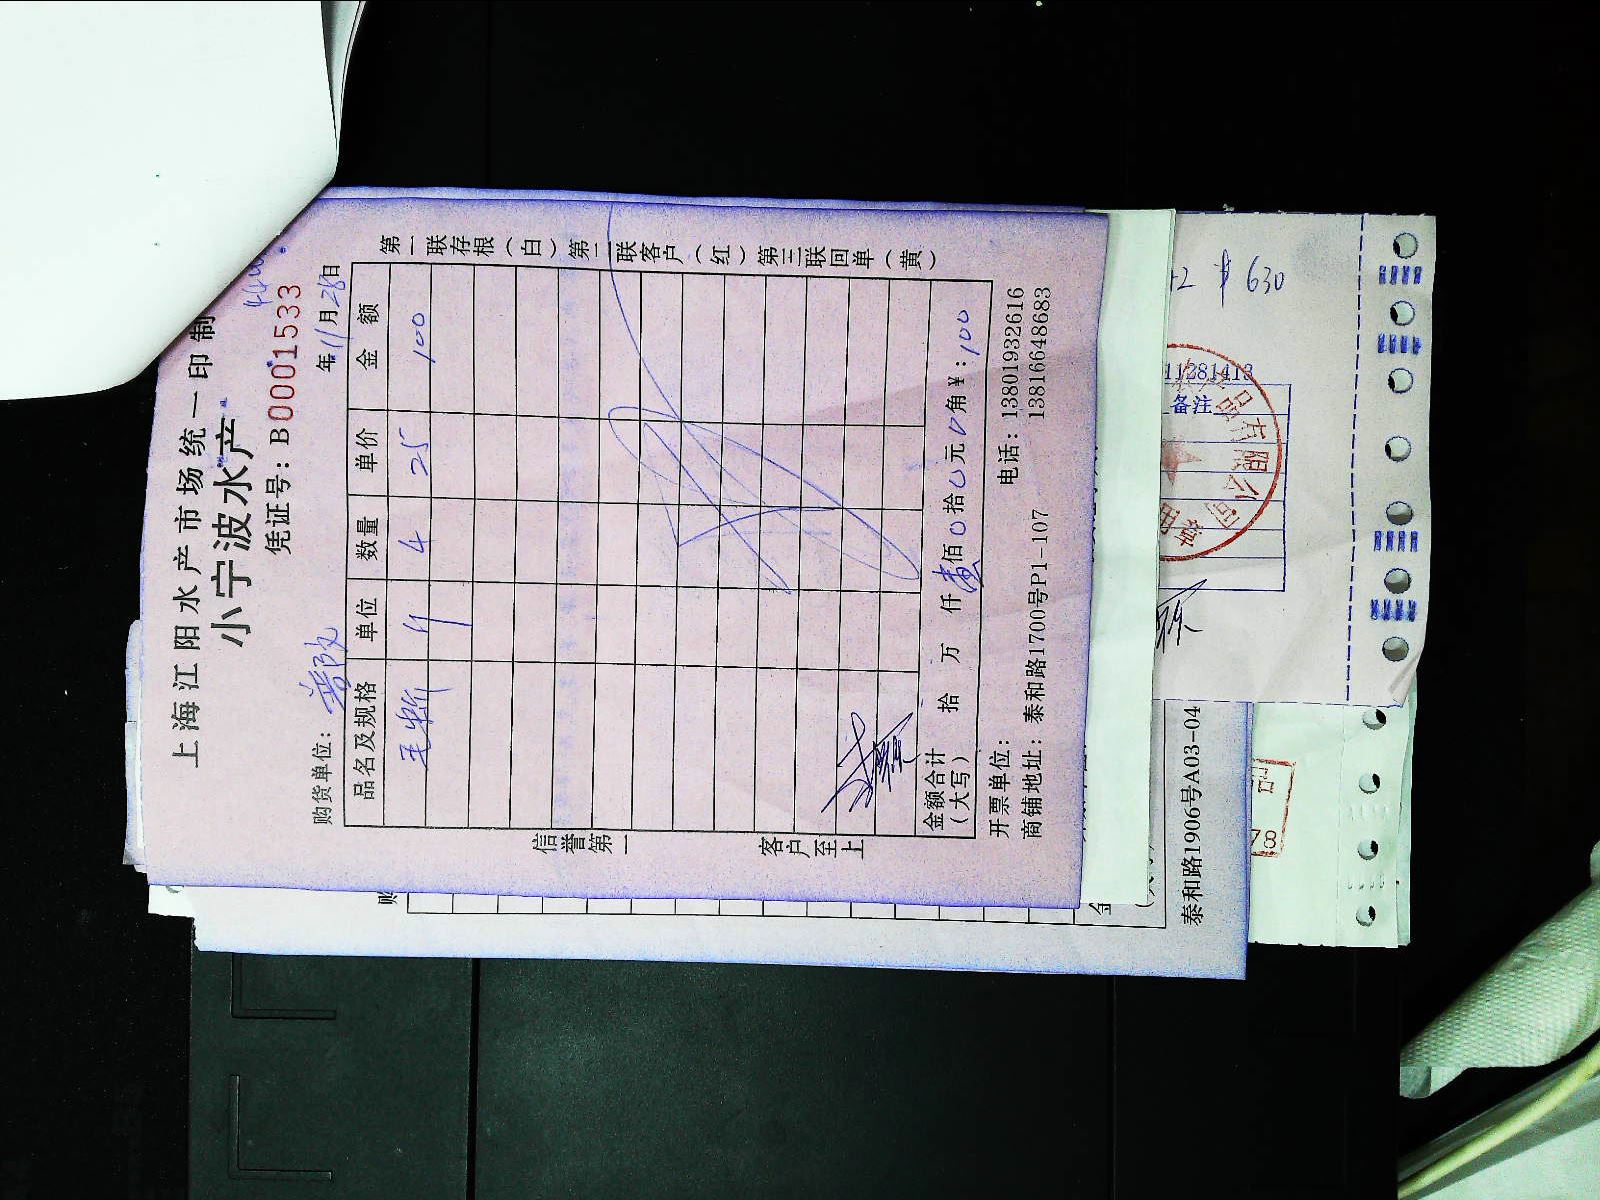 上海江阳水产市场统一印制
小宁波水产
凭证号：B0001533
购货单位： 年11月28日
品名及规格 单位 数量 单价 金额
斤 4 25 100
金额合计（大写） 拾 万 仟 壹佰0拾0元0角 ¥：100
开票单位： 电话：13801932616
13816648683
商铺地址：泰和路1700号P1-107
第一联存根（白）第二联客户（红）第三联回单（黄）
信誉第一
客户至上
630
11281413
备注
品有限公司
泰和路1906号A03-04
购
金
78